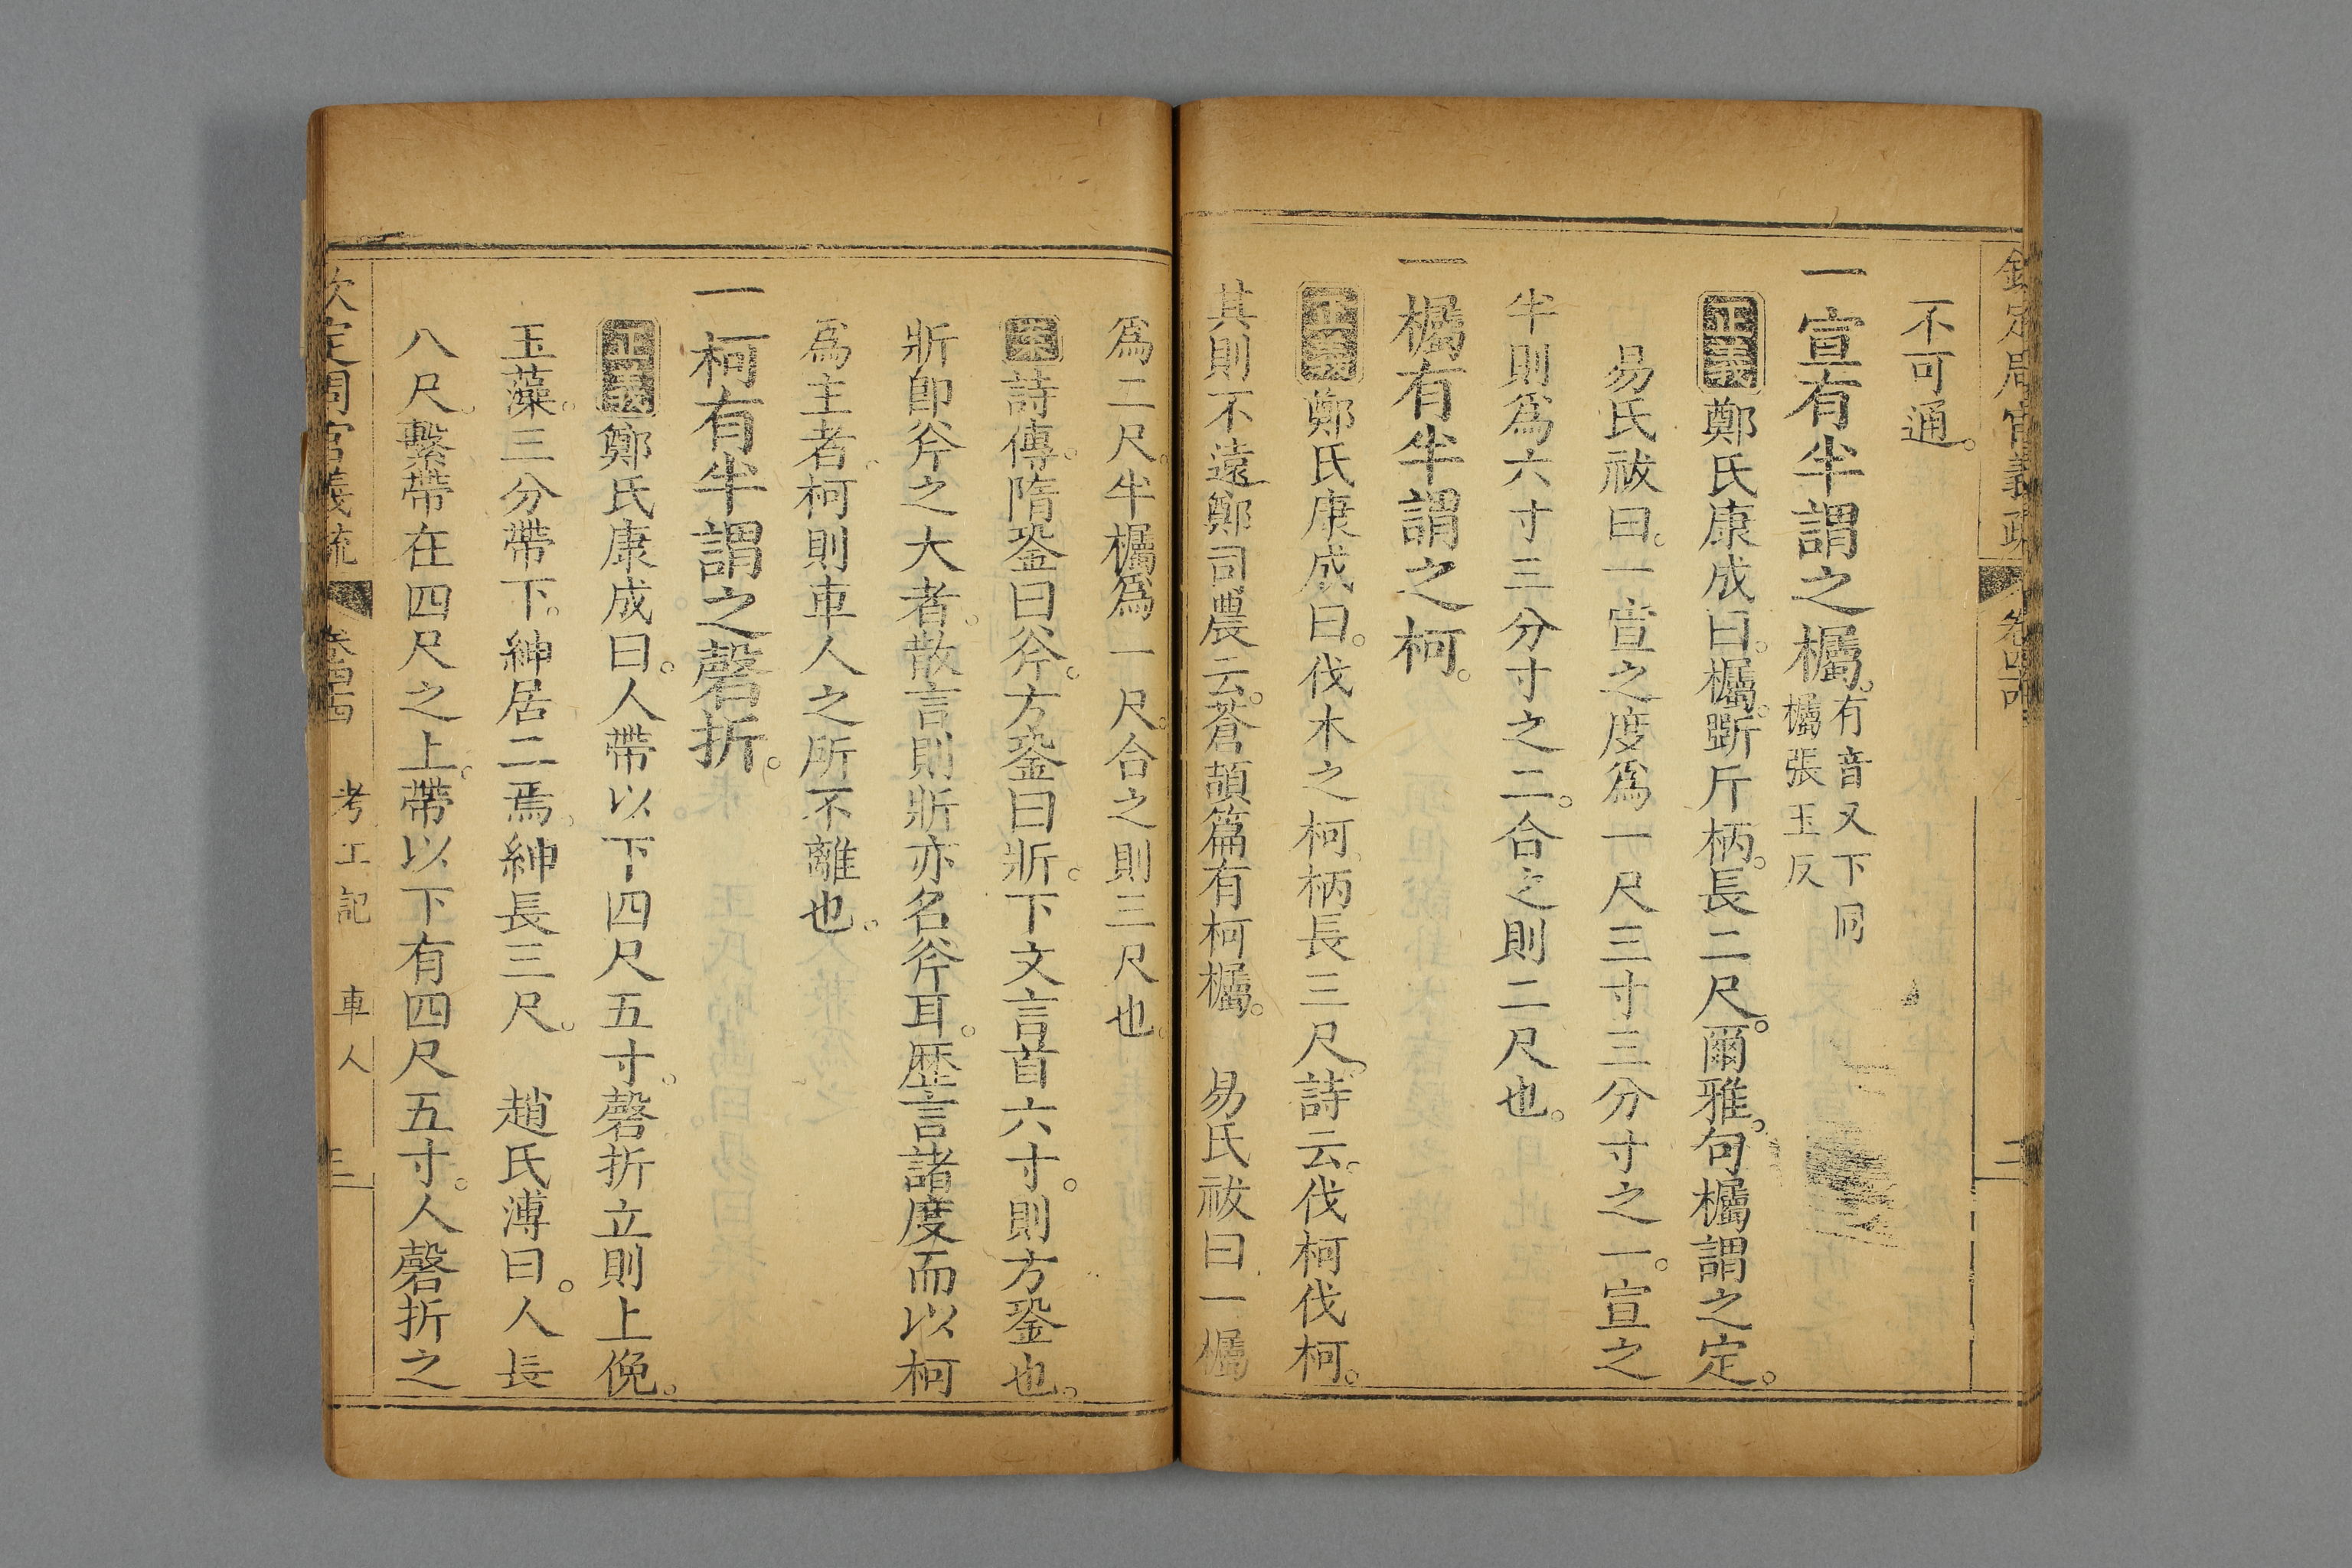 欽定周官義疏 卷四十四 二
不可通。
一宣有半謂之欘。有音又下同欘張玉反
正義鄭氏康成曰。欘。斲斤柄。長二尺。爾雅。句欘謂之定。
易氏祓曰。一宣之度爲一尺三寸三分寸之一。宣之
半則爲六寸三分寸之二。合之則二尺也。
一欘有半謂之柯。
正義鄭氏康成曰。伐木之柯柄長三尺。詩云。伐柯伐柯。
其則不遠鄭司農云。蒼頡篇有柯欘。 易氏祓曰一欘
爲二尺。半欘爲一尺。合之則三尺也。
案詩傳。隋銎曰斧。方銎曰斨。下文言首六寸。則方銎也。
斨卽斧之大者。散言則斨亦名斧耳。歷言諸度而以柯
爲主者。柯則車人之所不離也。
一柯有半謂之磬折。
正義鄭氏康成曰。人帶以下四尺五寸。磬折立則上俛。
玉藻。三分帶下。紳居二焉。紳長三尺。 趙氏溥曰。人長
八尺。繫帶在四尺之上。帶以下有四尺五寸。人磬折之
欽定周官義疏 卷四十四 考工記 車人 三